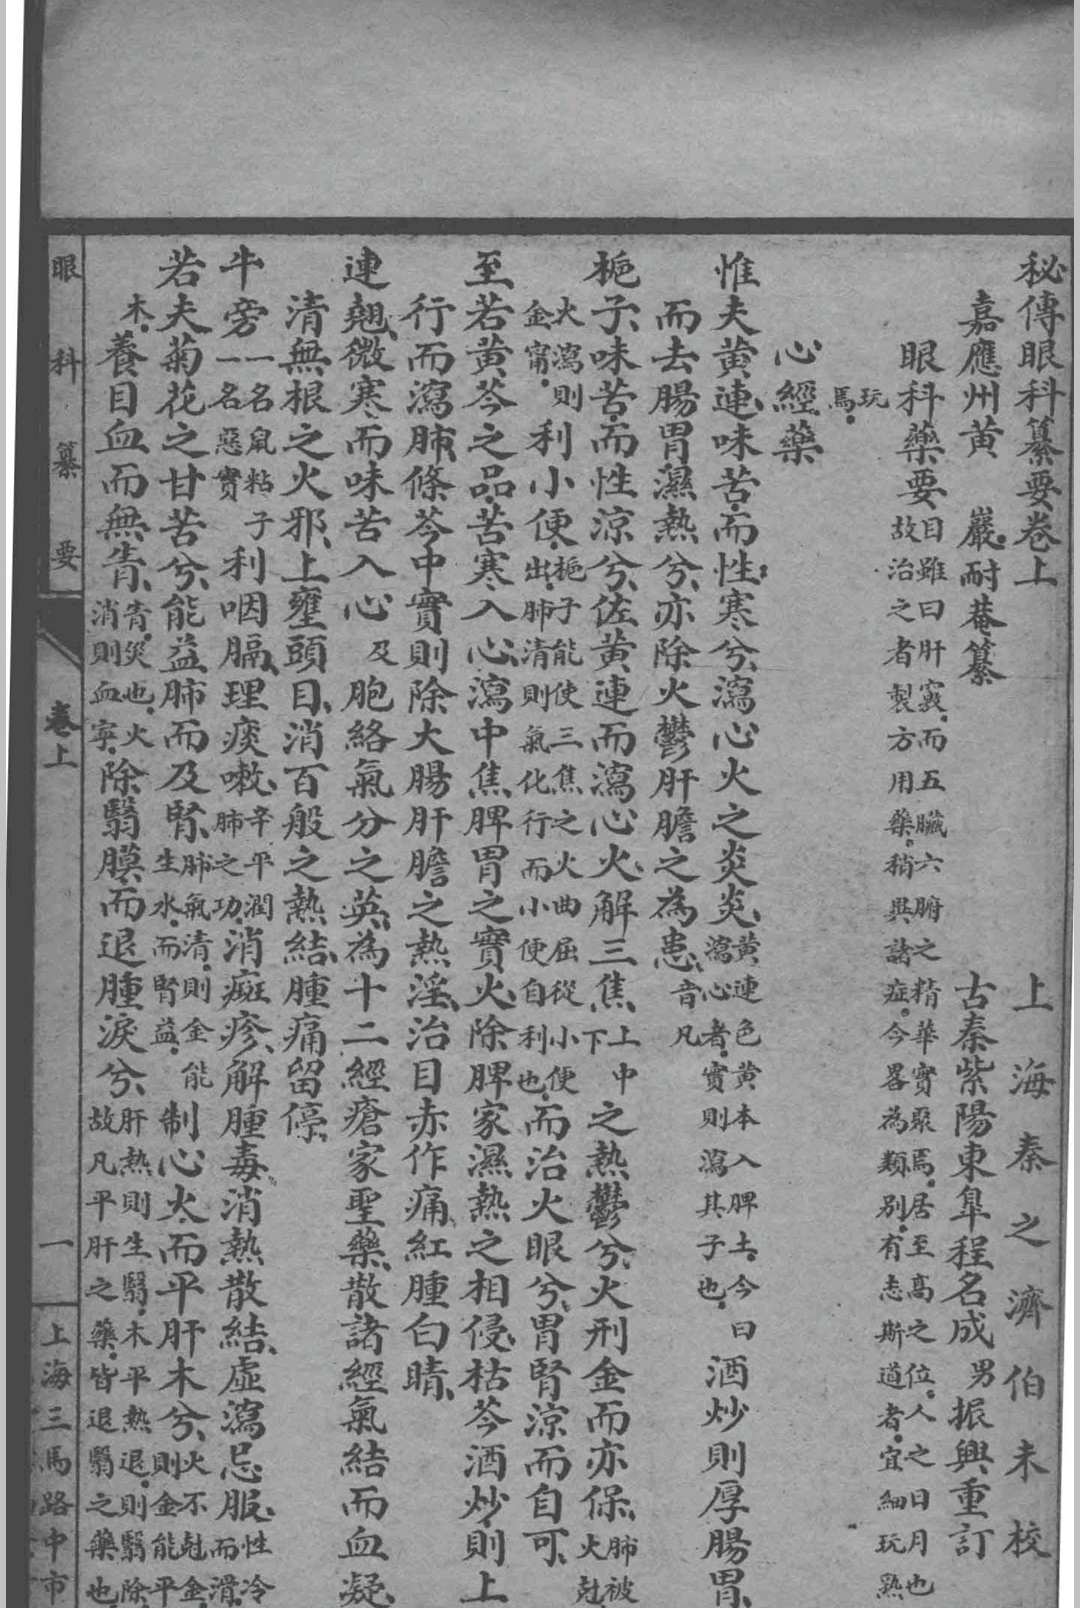 秘傳眼科纂要卷上
上海秦之濟伯未校
嘉應州黃　巖耐菴纂
古秦紫陽東臯程名成男振興重訂
眼科藥要目雖曰肝竅而五臟六腑之精華實聚焉居至高之位人之日月也故治之者製方用藥稍與諸症今畧為類別有志斯道者宜細玩熟
玩焉
心經藥
惟夫黃連味苦而性寒兮瀉心火之炎炎黃連色黃本入脾土今曰瀉心者實則瀉其子也酒炒則厚腸胃
而去腸胃濕熱兮亦除火鬱肝膽之為患音凡
梔子味苦而性涼兮佐黃連而瀉心火解三焦上中下之熱鬱兮火刑金而亦保肺被火尅
火瀉則金甯利小便梔子能使三焦之火曲屈從小便出肺清則氣化行而小便自利也而治火眼兮胃腎涼而自可
至若黃芩之品苦寒入心瀉中焦脾胃之實火除脾家濕熱之相侵枯芩酒炒則上
行而瀉肺條芩中實則除大腸肝膽之熱淫治目赤作痛紅腫白睛
連翹微寒而味苦入心及胞絡氣分之英為十二經瘡家聖藥散諸經氣結而血凝
清無根之火邪上壅頭目消百般之熱結腫痛留停
牛旁一名鼠粘子一名惡實利咽膈理痰嗽辛平潤肺之功消斑疹解腫毒消熱散結虛瀉忌服性冷而滑
若夫菊花之甘苦兮能益肺而及腎肺氣清則金能生水而腎益制心火而平肝木兮火不尅金則金能平
木養目血而無眚眚災也火消則血寧除翳膜而退腫淚兮肝熱則生翳木平熱退則翳除故凡平肝之藥皆退翳之藥也
眼科纂要
卷上
一
上海三馬路中市